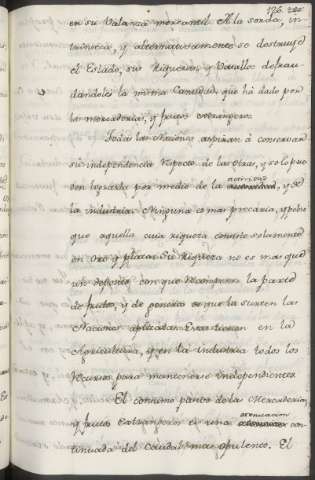 126
en su Valanza mercantil. A la sorda, in-
y alternativamente se destruye
el Estado, sus riquezas, y Vasallos defrau-
dandoles la misma Cantidad, que há dado por
las mercadurias, y frutos extrangeros.
Todas las Naciones aspiran á conservar
su independencia respecto de las otras, y solo pue-
den lograrla por medio de la actividad, y de
la industria. Ninguna es mas precaria, y pobre
que aquella cuia riqueza consiste solamente
en oro y plata. Su riqueza no es mas que
un deposito con que la
de frutos, y de generos de que la surten las
Naciones aplicadas. Estas tienen en la
Agricultura, y en la industria todos los
recursos para mantenerse independientes.
El consumo pasivo de las Mercadurias
y frutos extrangeros es una con-
tinuada del Caudal mas opulento. El